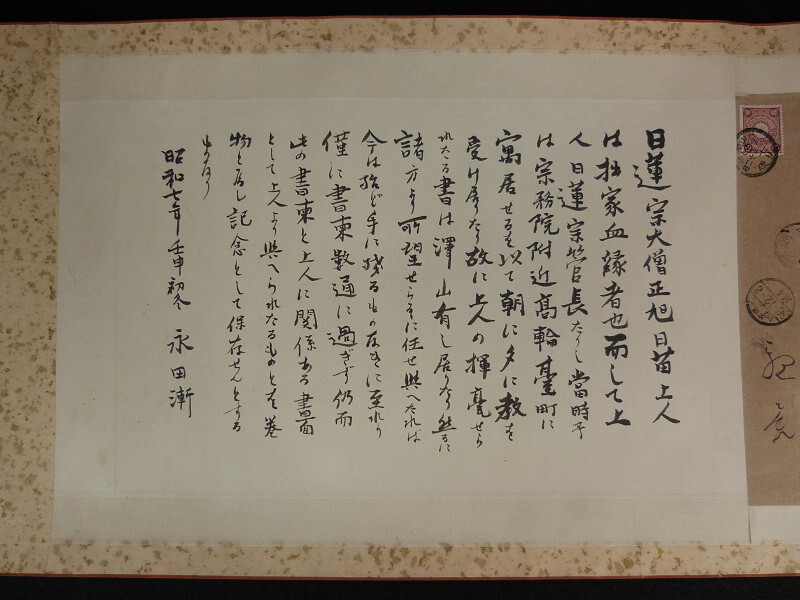 日蓮宗大僧正旭日苗上人
は拙家血縁者也而して上
人日蓮宗管長たりし當時予
は宗務院附近高輪臺町に
寓居せるを以て朝に夕に教を
受け居りたり故に上人の揮毫せら
れたる書は澤山有し居りたり然るに
諸方より所望せらるゝに任せ與へたれば
今は殆ど手に残るもの及きに至れり
僅に書柬數通に過ぎず仍而
此の書柬と上人に関係ある書面
として上人より與へられたるものとを巻
物と為し記念として保存せんとする
ものなり
昭和七年壬申初冬 永田漸